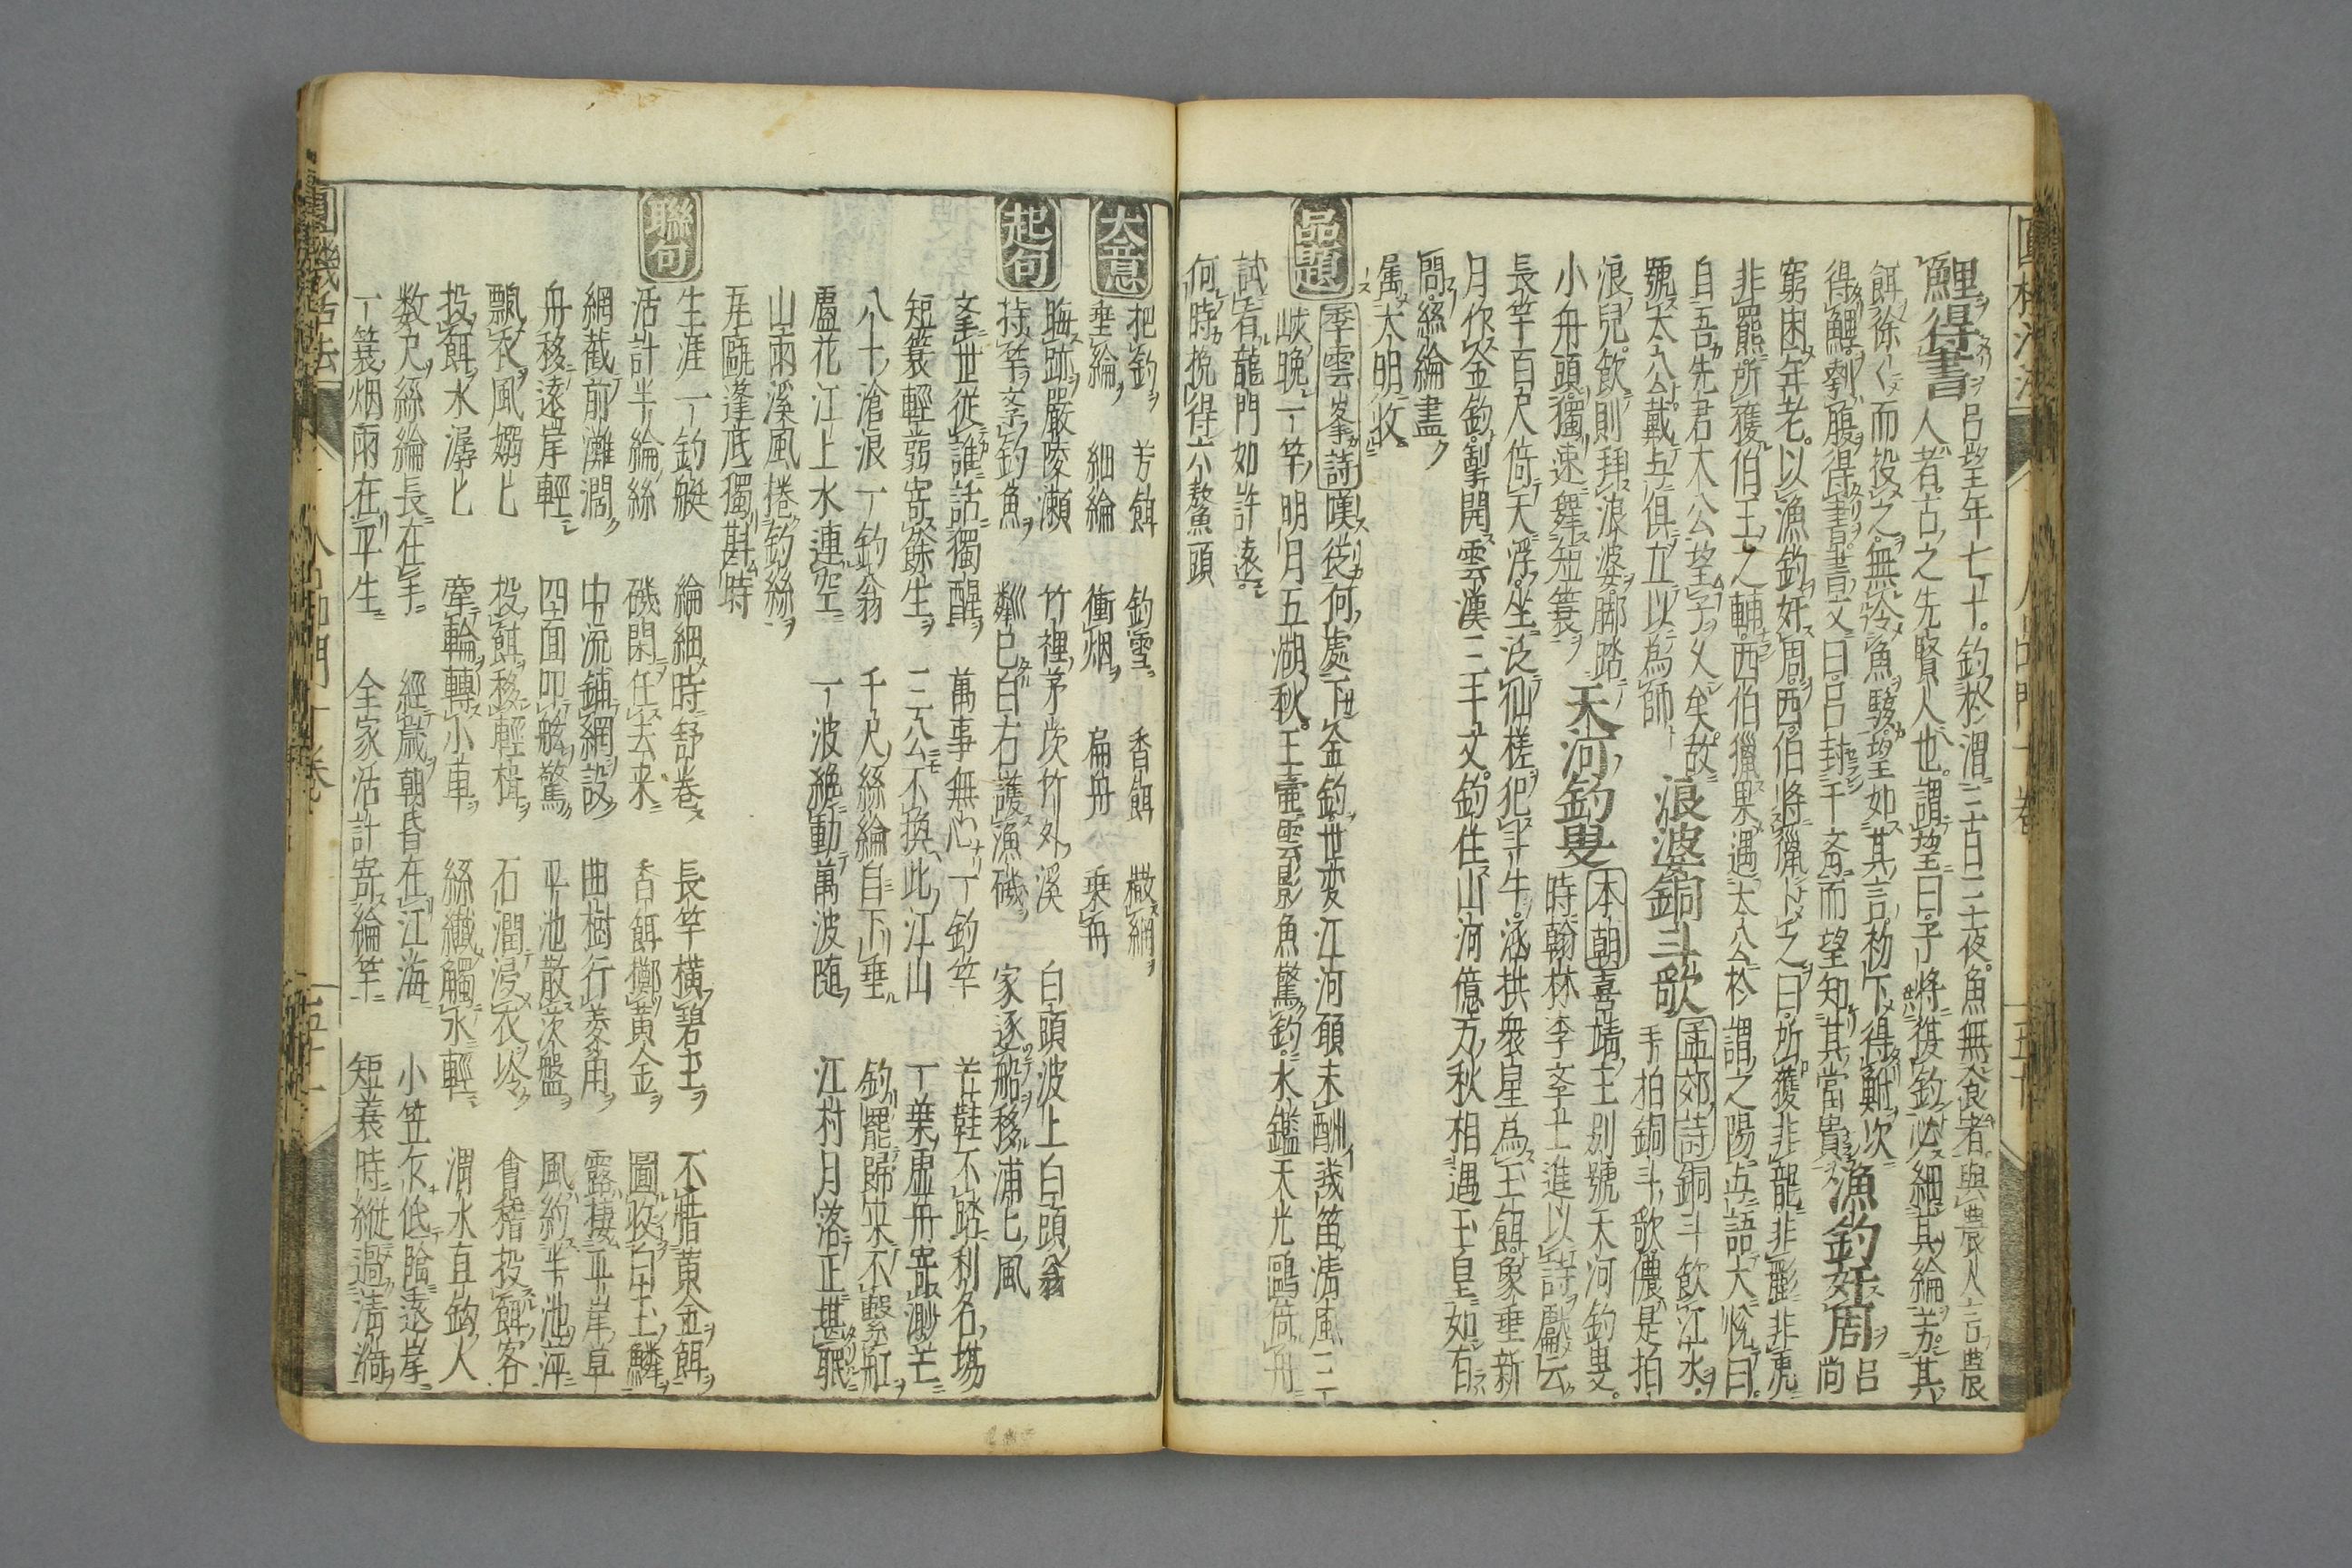 鯉得書 呂望年七十釣於渭三日三夜魚無食者與農人言農
人者古之先賢人也謂望曰子將復釣必細其綸芳其
餌徐〱而投之無令魚駭望如其言初下得鮒次
得鯉刳腹得書書文曰呂封于斉而望知其當貴 漁釣奸周 呂尚
窮困年老以漁釣奸周西伯將獵卜之曰所獲非龍非彲非虎
非羆所獲伯王之輔西伯獵果遇太公於謂之陽与語大悅曰
自吾先君太公望子久矣故
號太公戴与俱立以為師 浪婆銅斗歌 孟郊詩銅斗飲江水
手拍銅斗歌儂是拍
浪兒飲則拜浪婆脚踏
小舟頭獨速舞短蓑 天河釣叟 本朝喜靖主别號天河釣叟
時翰林李学士進以詩獻云
長竿百尺倚天浮坐泛仙槎犯斗牛泳拱衆星為玉餌象垂新
月作金釣掣開雲漢三千丈釣住山河億万秋相遇玉皇如有
問絲綸盡
属大明收
品題 季雲峯詩嘆從何處下金釣世变江河願未酬幾笛清風三
峽晚一竿明月五湖秋王壷雲影魚驚釣水鑑天光鷗倚舟
試看龍門如許遠
何時挽得六鰲頭
大意 把釣 芳餌 釣雪 香餌 撒網
垂綸 細綸 衝烟 扁舟 乗舟
起句 晦跡嚴陵瀬 竹裡茅茨竹外溪 白頭波上白頭翁
持竿学釣魚 粼巳白右護漁磯 家逐船移浦七風
挙世從誰話獨醒 萬事無心一釣竿 芒鞋不踏利名場
短蓑輕蒻寄餘生 三公不換此江山 一葉虚舟寄渺芒
八十滄浪一釣翁 千尺絲綸自下垂 釣罷歸来不繫舡
蘆花江上水連空 一波絶動萬波随 江村月落正堪眠
山雨溪風捲釣絲
瓦甌篷底獨斟時
聯句 生涯一釣艇 綸細時舒卷 長竿橫碧玉 不惜黄金餌
活計半綸絲 磯閑任去来 香餌擲黄金 圖收白玉鱗
網截前灘濶 中流鋪網設 曲樹行菱用 露棲平岸草
舟移遠岸輕 四面叩舷驚 平池散茨盤 風約半池萍
飄衣風嫋七 投餌移輕楫 石澗浸衣冷 會稽投餌客
投餌水潺七 牽輪轉小車 絲纖觸水輕 渭水直鈎人
数尺絲綸長在手 經歳朝昏在江海 小笠尓低臨遠岸
一蓑烟雨在平生 全家活計寄綸竿 短蓑時縦過清漪